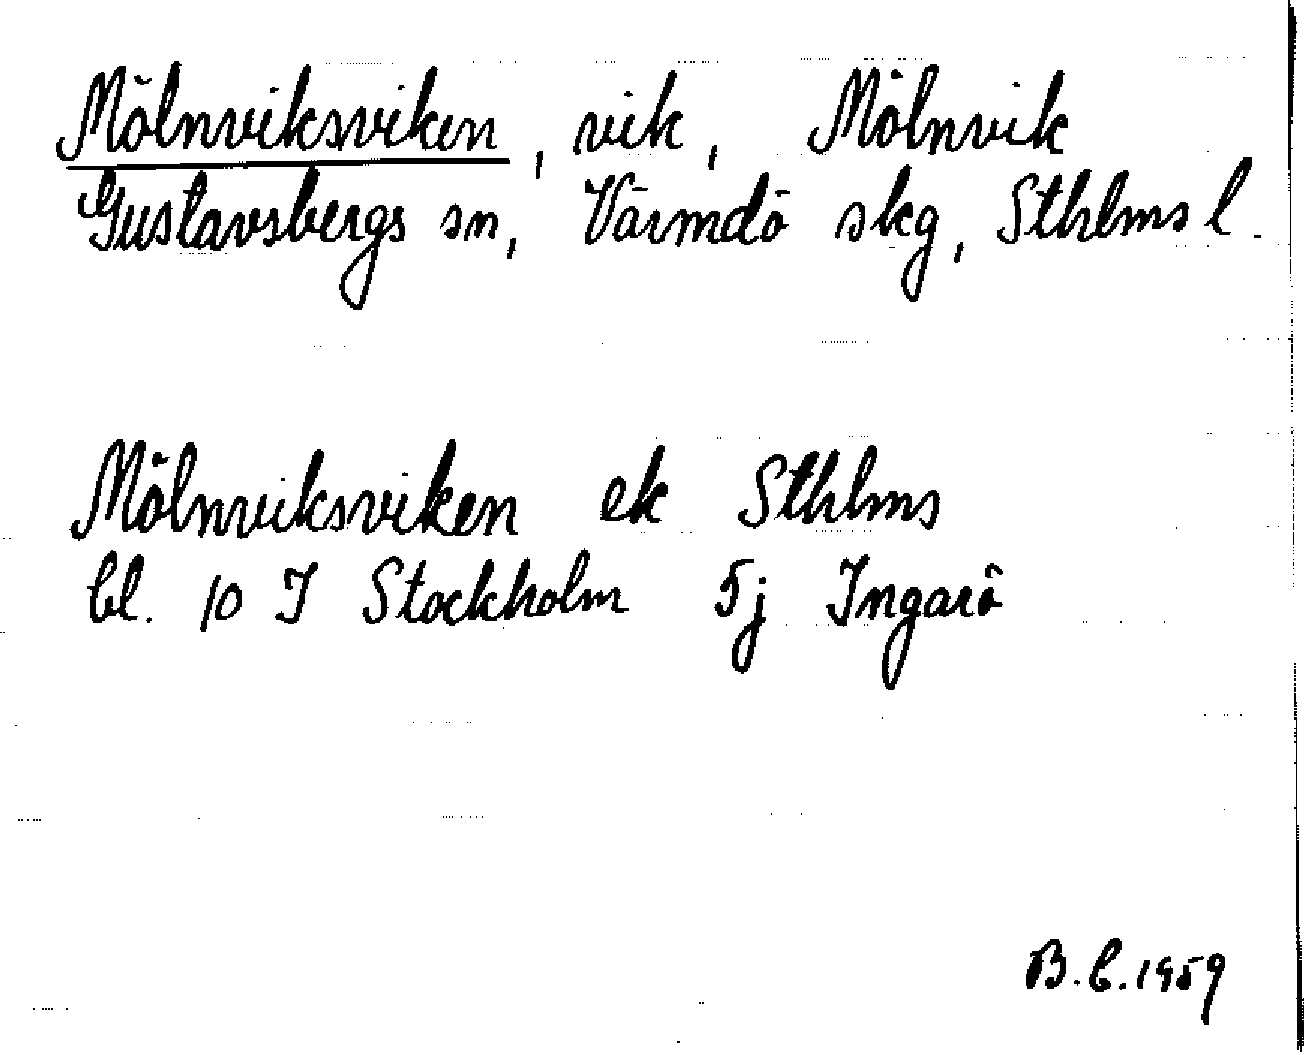 Mölnviksviken, vik, Mölnvik
Gustavsbergs sn, Värmdö skg, Sthlms l.
Mölnviksviken ek Sthlms
bl. 10 I Stockholm 5j Ingarö
B.C.1959